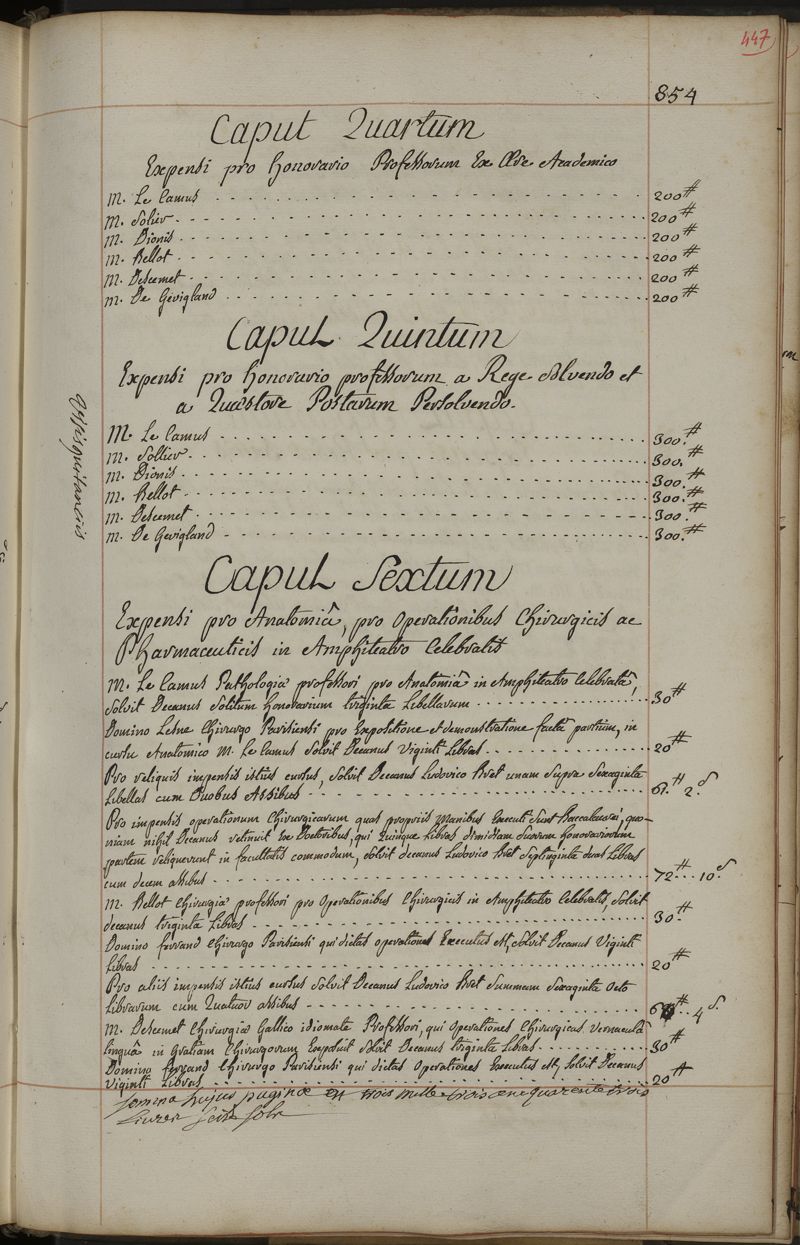 447
854
Caput Quartum
Expensi pro honorario Professorum Ex Ære Academico
M. Le Camus 200#
M. Solier 200#
M. Dionis 200#
M. Bellot 200#
M. Descemet 200#
M. De Gévigland 200#
Caput Quintum
Expensi pro honorario professorum a Rege Solvendo et
a Quæstore Postarum Persolvendo.
M. Le Camus 300.#
M. Sollier 300.#
M. Dionis 300.#
M. Bellot 300.#
M. Descemet 300.#
M. De Gevigland 300.#
Caput Sextum
Expensi pro Anatomiâ, pro Operationibus Chirurgicis ac
Pharmaceuticis in Amphiteatro Celebratis
M. Le Camus Pathologiæ professori pro Anatomiâ in Amphiteatro Celebratâ,
Solvit Decanus Solitum honorarium triginta Libellarum 30#
Domino Lesne Chirurgo Parisiensi pro Expositione et demonstratione factâ partium, in
cursu Anatomico M. Le Camus Solvit Decanus Viginti Libras 20#
Pro reliquis impensis istius cursus, Solvit Decanus Ludovico hret unam Supra Sexaginta
Libellas cum Duobus Assibus 61.# 2.s
Pro impensis operationum Chirurgicarum quas propriis Manibus Executi Sunt Baccalaurei, quo-
niam nihil Decanus retinuit de Doctoribus, qui Quinque Libras dimidiam suorum honorariorum
partem reliquerunt in facultatis commodum, Solvit decanus Ludovico hret Septuaginta duas Libras
cum decem assibus 72# 10.s
M. Bellot Chirurgiæ professori pro Operationibus Chirurgicis in Amphiteatro Celebratis, Solvit
decanus triginta Libras 30.#
Domino ferrand Chirurgo Parisiensi qui dictas operationes Executus est, Solvit Decanus Viginti
Libras 20#
Pro aliis impensis istius cursus Solvit Decanus Ludovico hret Summam Sexaginta Octo
Librarum cum Quatuor assibus 68# 4s.
M. Descemet Chirurgiæ Gallico idiomate Professori, qui Operationes Chirurgicas Vernaculâ
linguâ in Gratiam Chirurgorum Exposuit Solvit Decanus triginta Libras 30#
Domino ferrand Chirurgo Parisiensi qui dictas Operationes Executus est, Solvit Decanus
Viginti Libras 20#
Somma hujus paginæ est trois mille trois cent quarante trois
Livres Seize Sols